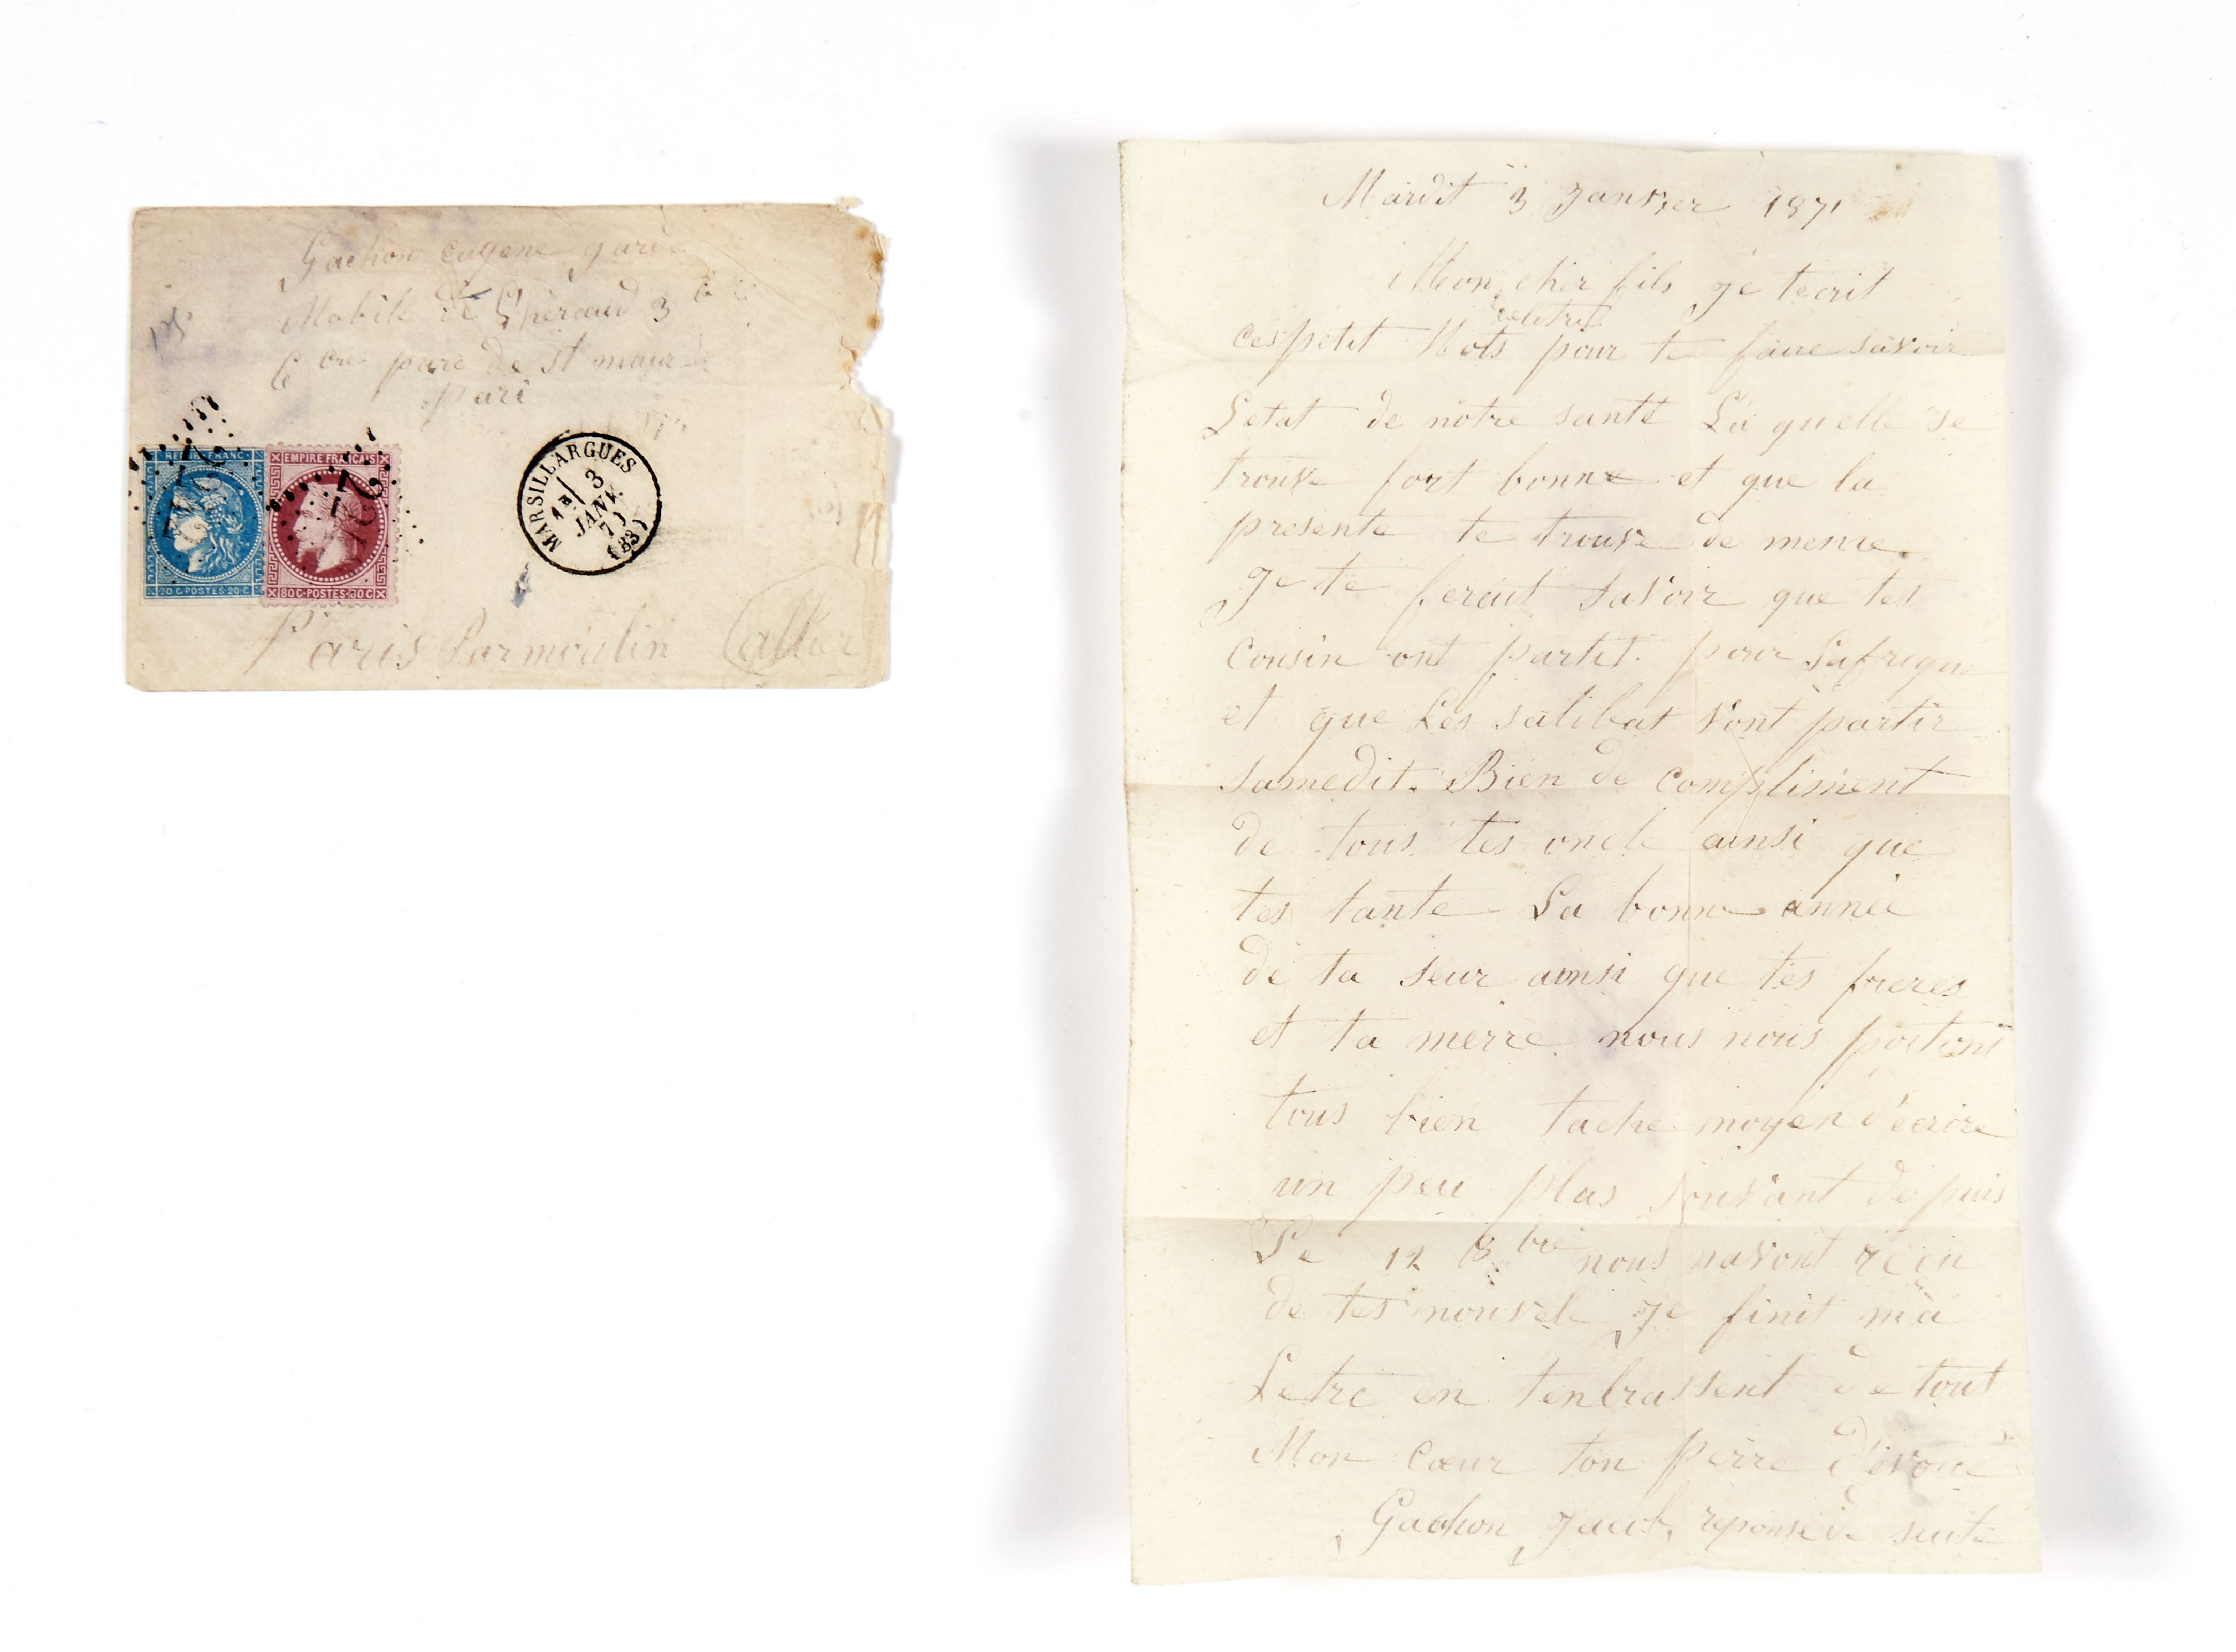 Gachon eugene garde
Mobile de Lherault 3
Cie parc de st maur à
pari
REPUB · FRANC ·
20 C · POSTES · 20 · C
EMPIRE FRANÇAIS
80 C · POSTES · 80 C
MARSILLARGUES
3
JANV.
71
(33)
Paris Parmoulin (allier
Mardit 3 Janvier 1871
Mon cher fils je tecrit
ces petit Mots pour te faire savoir
Letat de notre santé La quelle se
trouve fort bonne et que la
presente te trouve de meme.
Je te ferait savoir que tes
Cousin ont partit. pour Lafrique
et que Les salibat vont partir
samedit. Bien de compliment
de tous tes oncle ainsi que
tes tante La bonne année
de ta seur ainsi que tes freres
et ta merre nous nous portont
tous bien tache moyen d'écrire
un peu plus souvant depuis
Le 12 8bre nous navont reçu
de tes nouvele je finit ma
Letre en tenbrassent de tout
Mon Cœur ton perre dévoué
Gachon Jacob, reponse de suite